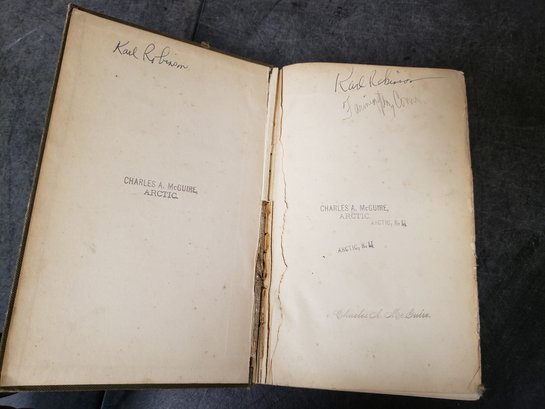 Karl Robinson
CHARLES A. McGUIRE,
ARCTIC.
Karl Robinson
Farmington, Conn.
CHARLES A. McGUIRE,
ARCTIC.
ARCTIC, R. I.
ARCTIC, R. I.
Charles A. McGuire.